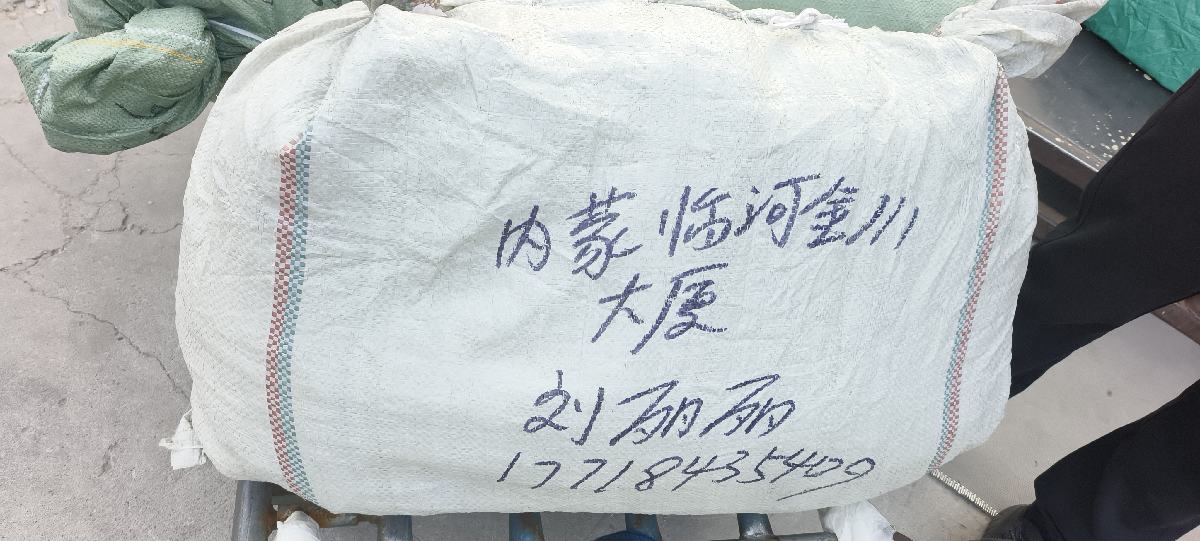 内蒙临河金川
大厦
刘丽丽
17718435409